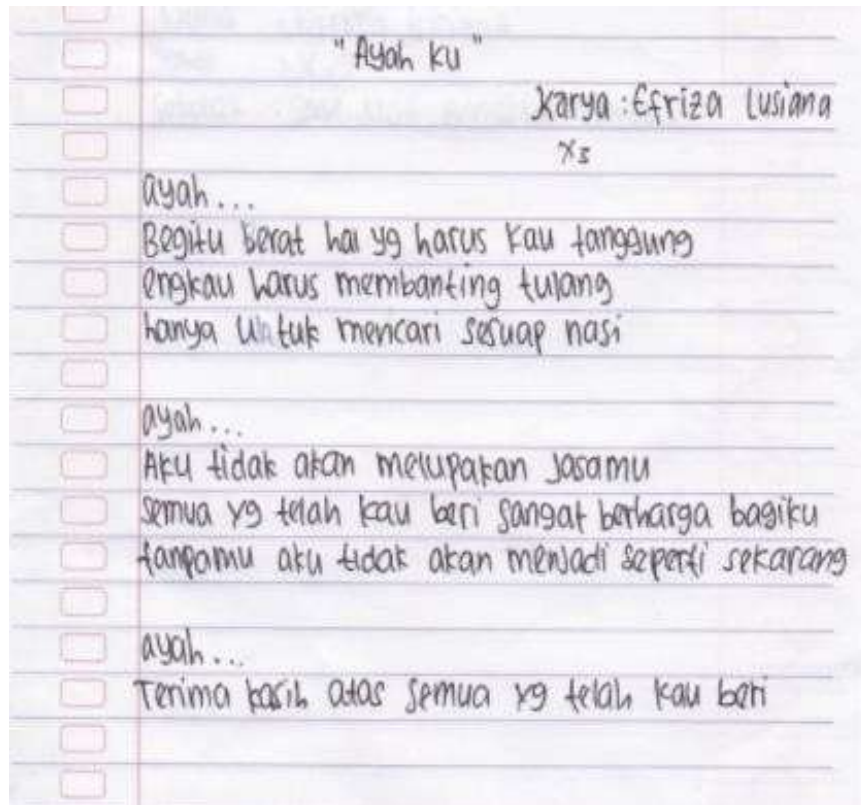 "Ayah ku"
Karya : Efriza Lusiana
X3
ayah...
Begitu berat hal yg harus kau tanggung
engkau harus membanting tulang
hanya untuk mencari sesuap nasi
ayah...
Aku tidak akan melupakan Jasamu
Semua yg telah kau beri sangat berharga bagiku
tanpamu aku tidak akan menjadi seperti sekarang
ayah...
Terima kasih atas semua yg telah kau beri